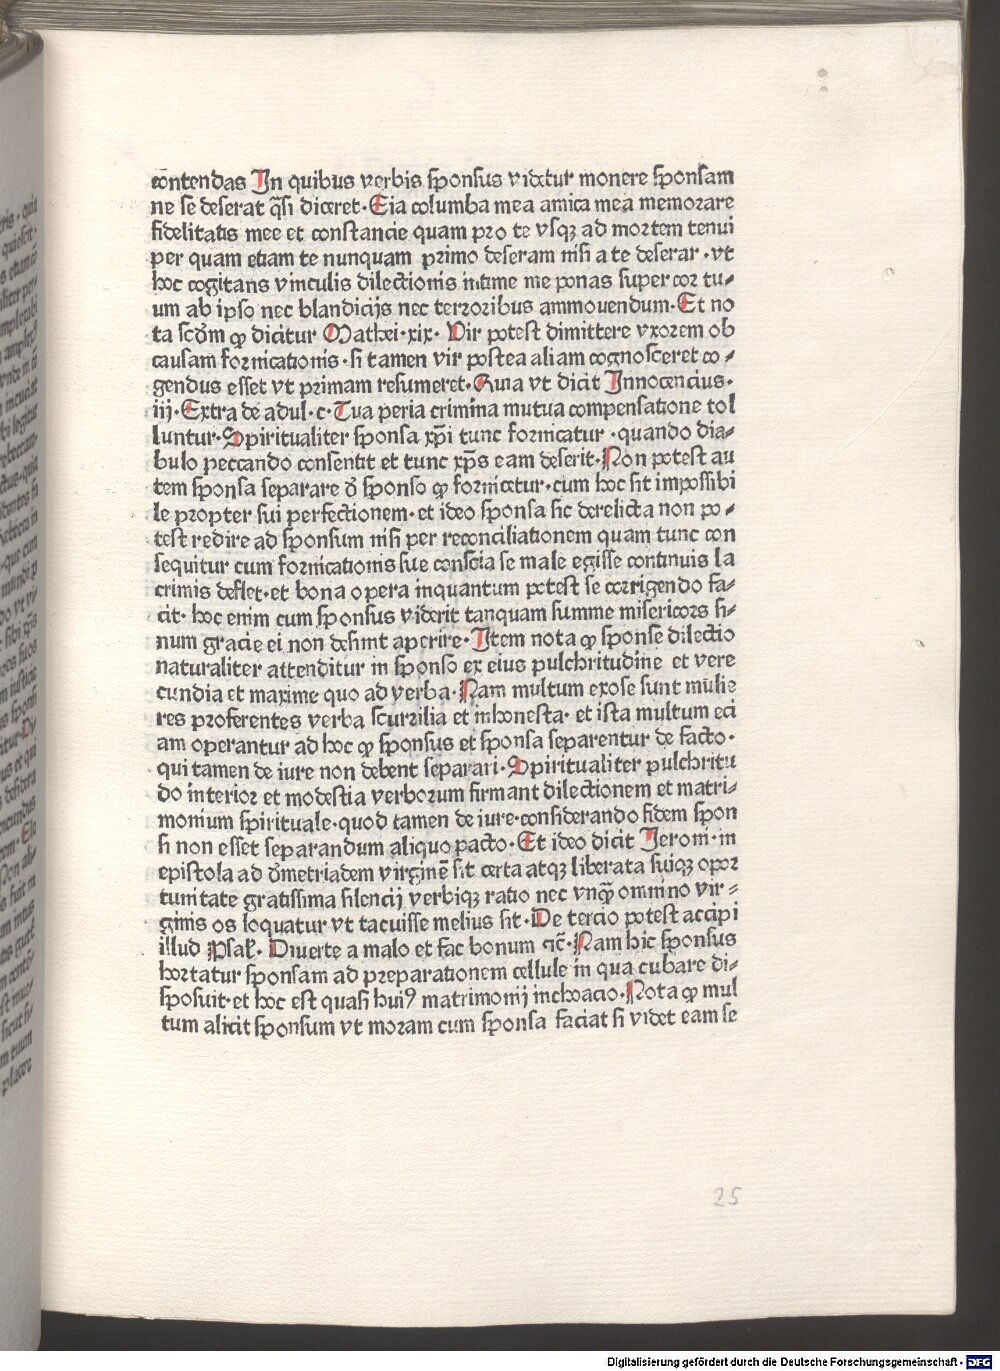 cōntendas In quibus verbis sponsus videtur monere sponsam
ne se deserat q̄si diceret· Eia columba mea amica mea memorare
fidelitatis mee et constancie quam pro te vsqꝫ ad mortem tenui
per quam etiam te nunquam primo deseram nisi a te deserar ·vt
hoc cogitans vinculis dilectionis intime me ponas super cor tu⸗
um ab ipso nec blandicijs nec terroribus ammouendum· Et no
ta scd̄m ꝙ dicitur Mathei·xix· Vir potest dimittere vxorem ob
causam fornicationis·si tamen vir postea aliam cognosceret co⸗
gendus esset vt primam resumeret· Quia vt dicit Innocencius·
iij· Extra de adul·c·Tua peria crimina mutua compensatione tol
luntur· Spiritualiter sponsa xp̄i tunc fornicatur ·quando dia⸗
bulo peccando consentit et tunc xp̄s eam deserit· Non potest au
tem sponsa separare d̄ sponso ꝙ fornicetur·cum hoc sit impossibi
le propter sui perfectionem·et ideo sponsa sic derelicta non po⸗
test redire ad sponsum nisi per reconciliationem quam tunc con
sequitur cum fornicationis sue conscia se male egisse continuis la
crimis deflet·et bona opera inquantum potest se corrigendo fa⸗
cit· hoc enim cum sponsus viderit tanquam summe misericors si⸗
num gracie ei non desinit aperire· Item nota ꝙ sponse dilectio
naturaliter attenditur in sponso ex eius pulchritudine et vere
cundia et maxime quo ad verba· Nam multum exose sunt mulie
res proferentes verba scurrilia et inhonesta· et ista multum eci
am operantur ad hoc ꝙ sponsus et sponsa separentur de facto·
qui tamen de iure non debent separari· Spiritualiter pulchritu
do interior et modestia verborum firmant dilectionem et matri⸗
monium spirituale·quod tamen de iure·considerando fidem spon
si non esset separandum aliquo pacto· Et ideo dicit Ieronī·in
epistola ad d̄metriadem virginē sit certa atqꝫ liberata suiqꝫ opor
tunitate gratissima silencij verbiqꝫ ratio nec vnqꝫ̄ omnino vir⸗
ginis os loquatur vt tacuisse melius sit· De tercio potest accipi
illud Psal· Diuerte a malo et fac bonum ⁊c̄· Nam hic sponsus
hortatur sponsam ad preparationem cellule in qua cubare di⸗
sposuit·et hoc est quasi huiꝰ matrimonij inchoacio· Nota ꝙ mul
tum alicit sponsum vt moram cum sponsa faciat si videt eam se
25
Digitalisierung gefördert durch die Deutsche Forschungsgemeinschaft · DFG